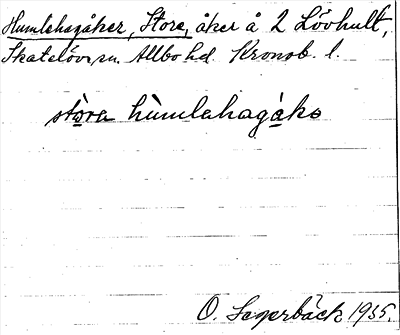 Humlehagåker, Store, åker å 2 Lövhult,
Skatelövs sn. Allbo hd. Kronob. l.
stòra hùmlahagåkə
O. Sagerbäck 1935.